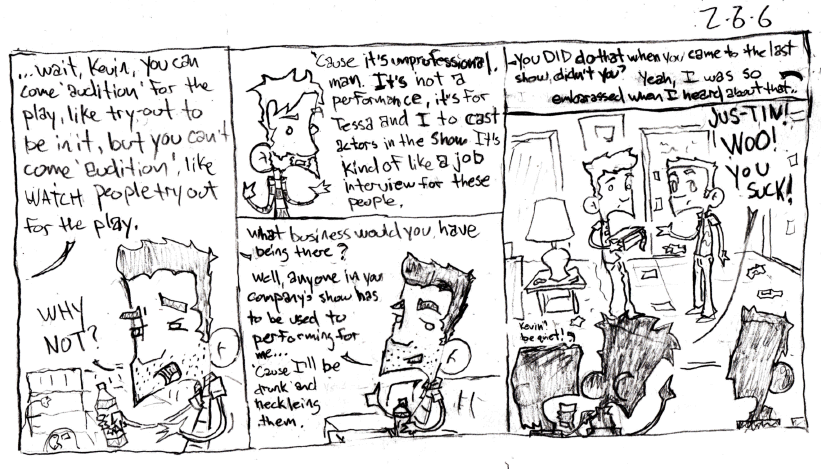 2.8.6
...wait, Kevin, you can
come 'audition' for the
play, like try-out to
be in it, but you can't
come 'audition', like
WATCH people try out
for the play.
WHY
NOT?
'Cause it's unprofessional,
man. It's not a
performance, it's for
Tessa and I to cast
actors in the show. It's
kind of like a job
interview for these
people.
What business would you have
being there?
Well, anyone in your
company's show has
to be used to
performing for
me...
'Cause I'll be
drunk and
heckleing
them.
you DID do that when you came to the last
show, didn't you? Yeah, I was so
embarassed when I heard about that..
JUS-TIN!
WOO!
YOU
SUCK!
Kevin!
be quiet!